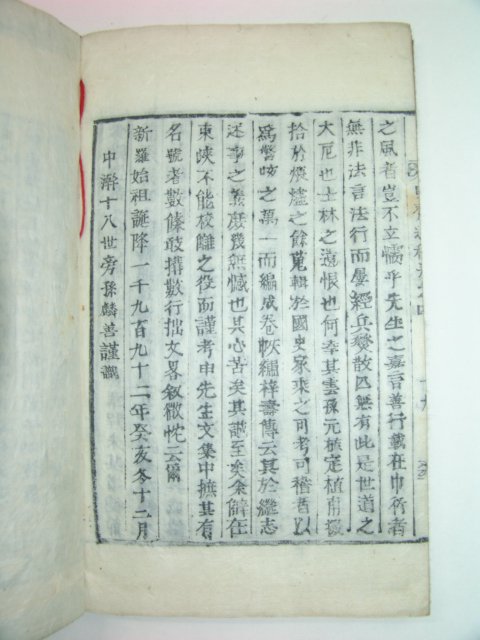 之風者豈不立懦乎先生之嘉言善行載在巾衍者
無非法言法行而屢經兵燹散亡無有此是世道之
大厄也士林之遺恨也何幸其雲孫元植定植甫掇
拾於煨爐之餘蒐輯於國史家乘之可考可稽者以
爲警咳之萬一而編成卷帙繡梓壽傳云其於繼志
述事之義庶幾無憾也其心苦矣其誠至矣余僻在
東峽不能校讎之役而謹考申先生文集中摭其有
名號者數條敢搆數行拙文畧敘微忱云爾
新羅始祖誕降一千九百九十二年癸亥冬十二月
中澣十八世旁孫麟善謹識